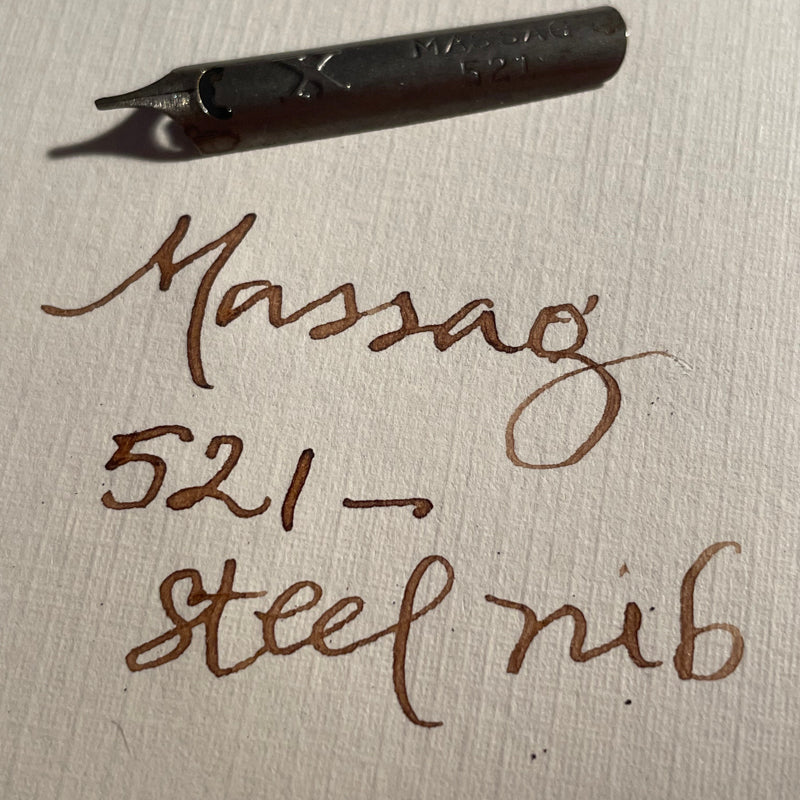 MASSAG
521
Massag
521 —
steel nib